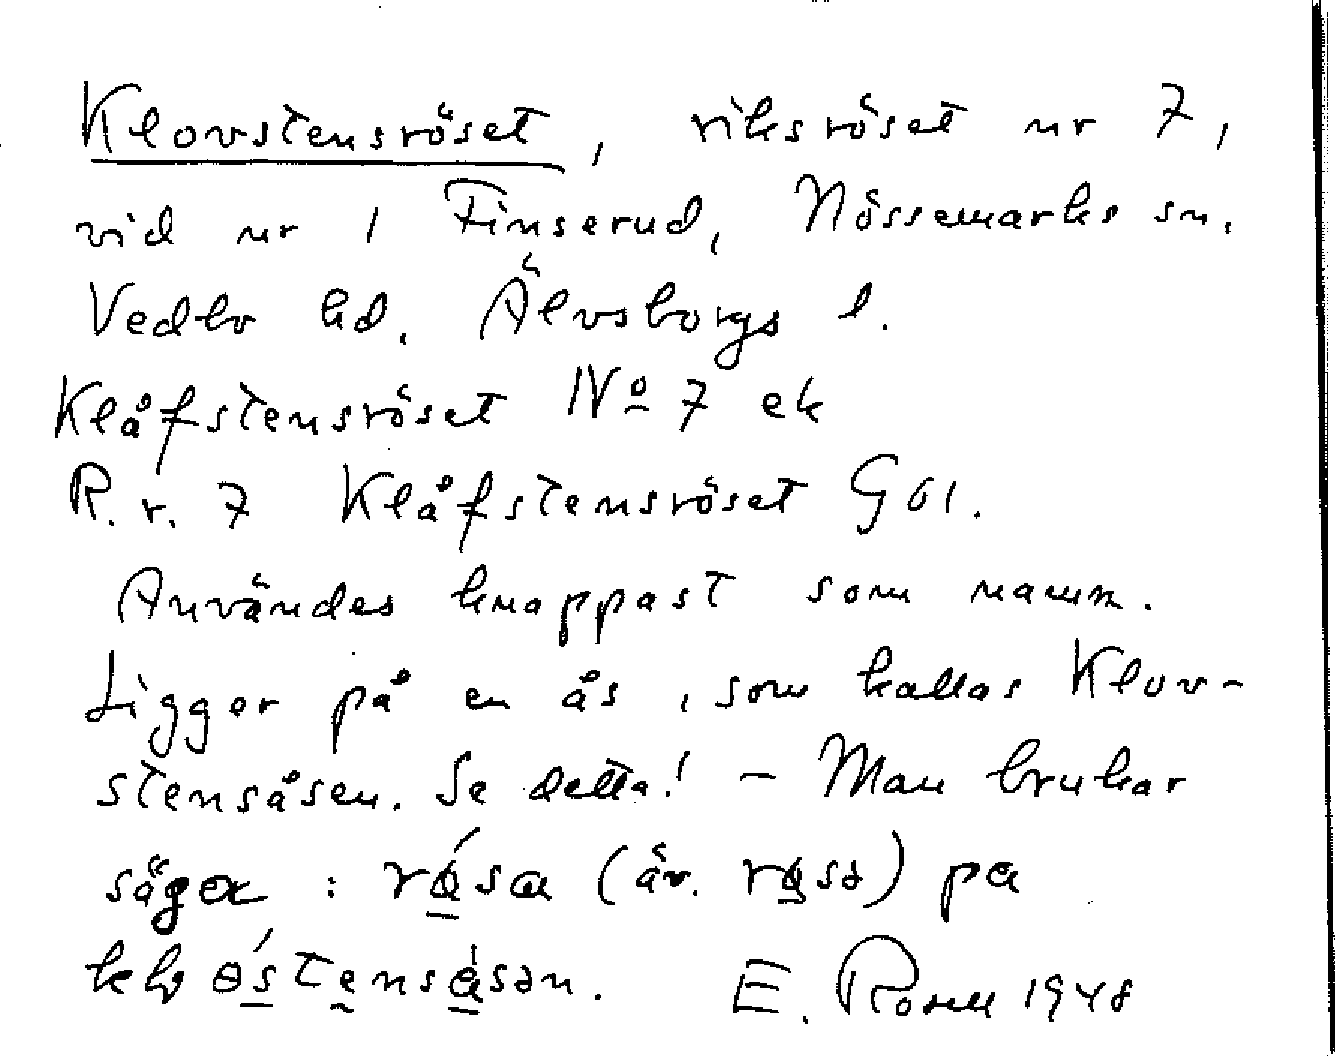 Klovstensröset, riksröset nr 7,
vid nr 1 Finserud, Nössemarks sn.
Vedbo hd. Älvsborgs l.
Klåfstensröset No 7 ek
R. r. 7 Klåfstensröset G 61.
Användes knappast som namn.
Ligger på en ås, som kallas Klov-
stensåsen. Se detta! – Man brukar
säga : (äv. ) pa
E. Rosell 1948